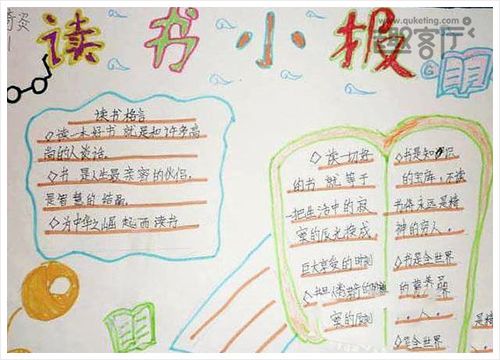 www.quketing.com
客厅
读书小报
读书格言
◇读一本好书 就是和许多高
尚的人谈话。
◇书 是人生最美容的伙侣，
是智慧的结晶
◇为中华之崛 起而读书
◇读一切好
的书 就等于
把生活中的寂
寞的辰光换成
巨大享受的时刻
寞的辰刻
◇书是知识
的宝库，不读
书你永远是精
神的穷人。
◇书是全世界
的营养
◇书是全世界
是精